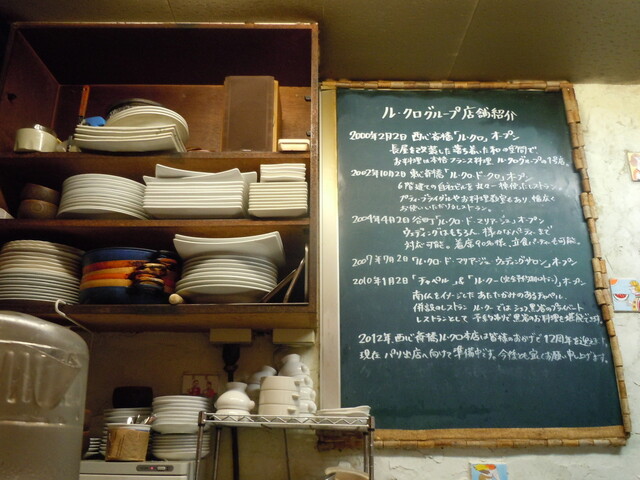 ル・クログループ店舗紹介
2000年2月2日 西心斎橋「ル・クロ」オープン
長屋を改装した落ち着いた和の空間で、
お料理は本格フランス料理 ル・クログループの1号店。
2002年10月2日 東心斎橋「ル・クロ・ド・クロ」オープン
6階建ての自社ビルを丸々一棟使ったレストラン。
パーティ・ブライダルやお料理教室もあり、幅広く
お使いいただけるレストラン。
2004年4月2日 谷町「ル・クロ・ド・マリアージュ」オープン
ウェディングはもちろん、様々なパーティーまで
対応可能。着席90名様、立食パーティーも可能。
2007年7月2日「ル・クロ・ド・マリアージュ ウェディングサロン」オープン
2010年1月2日「チャペル &「ル・クロー オープン
南仏をイメージした あたたかみのあるチャペル
併設のレストラン ル・クローでは シェフ黒岩のプライベート
レストランとして
2012年、西心斎橋ル・クロ本店は皆様のおかげで12周年を迎え
現在 パリ出店へ向けて準備中です。今後とも宜しくお願い申し上げます。